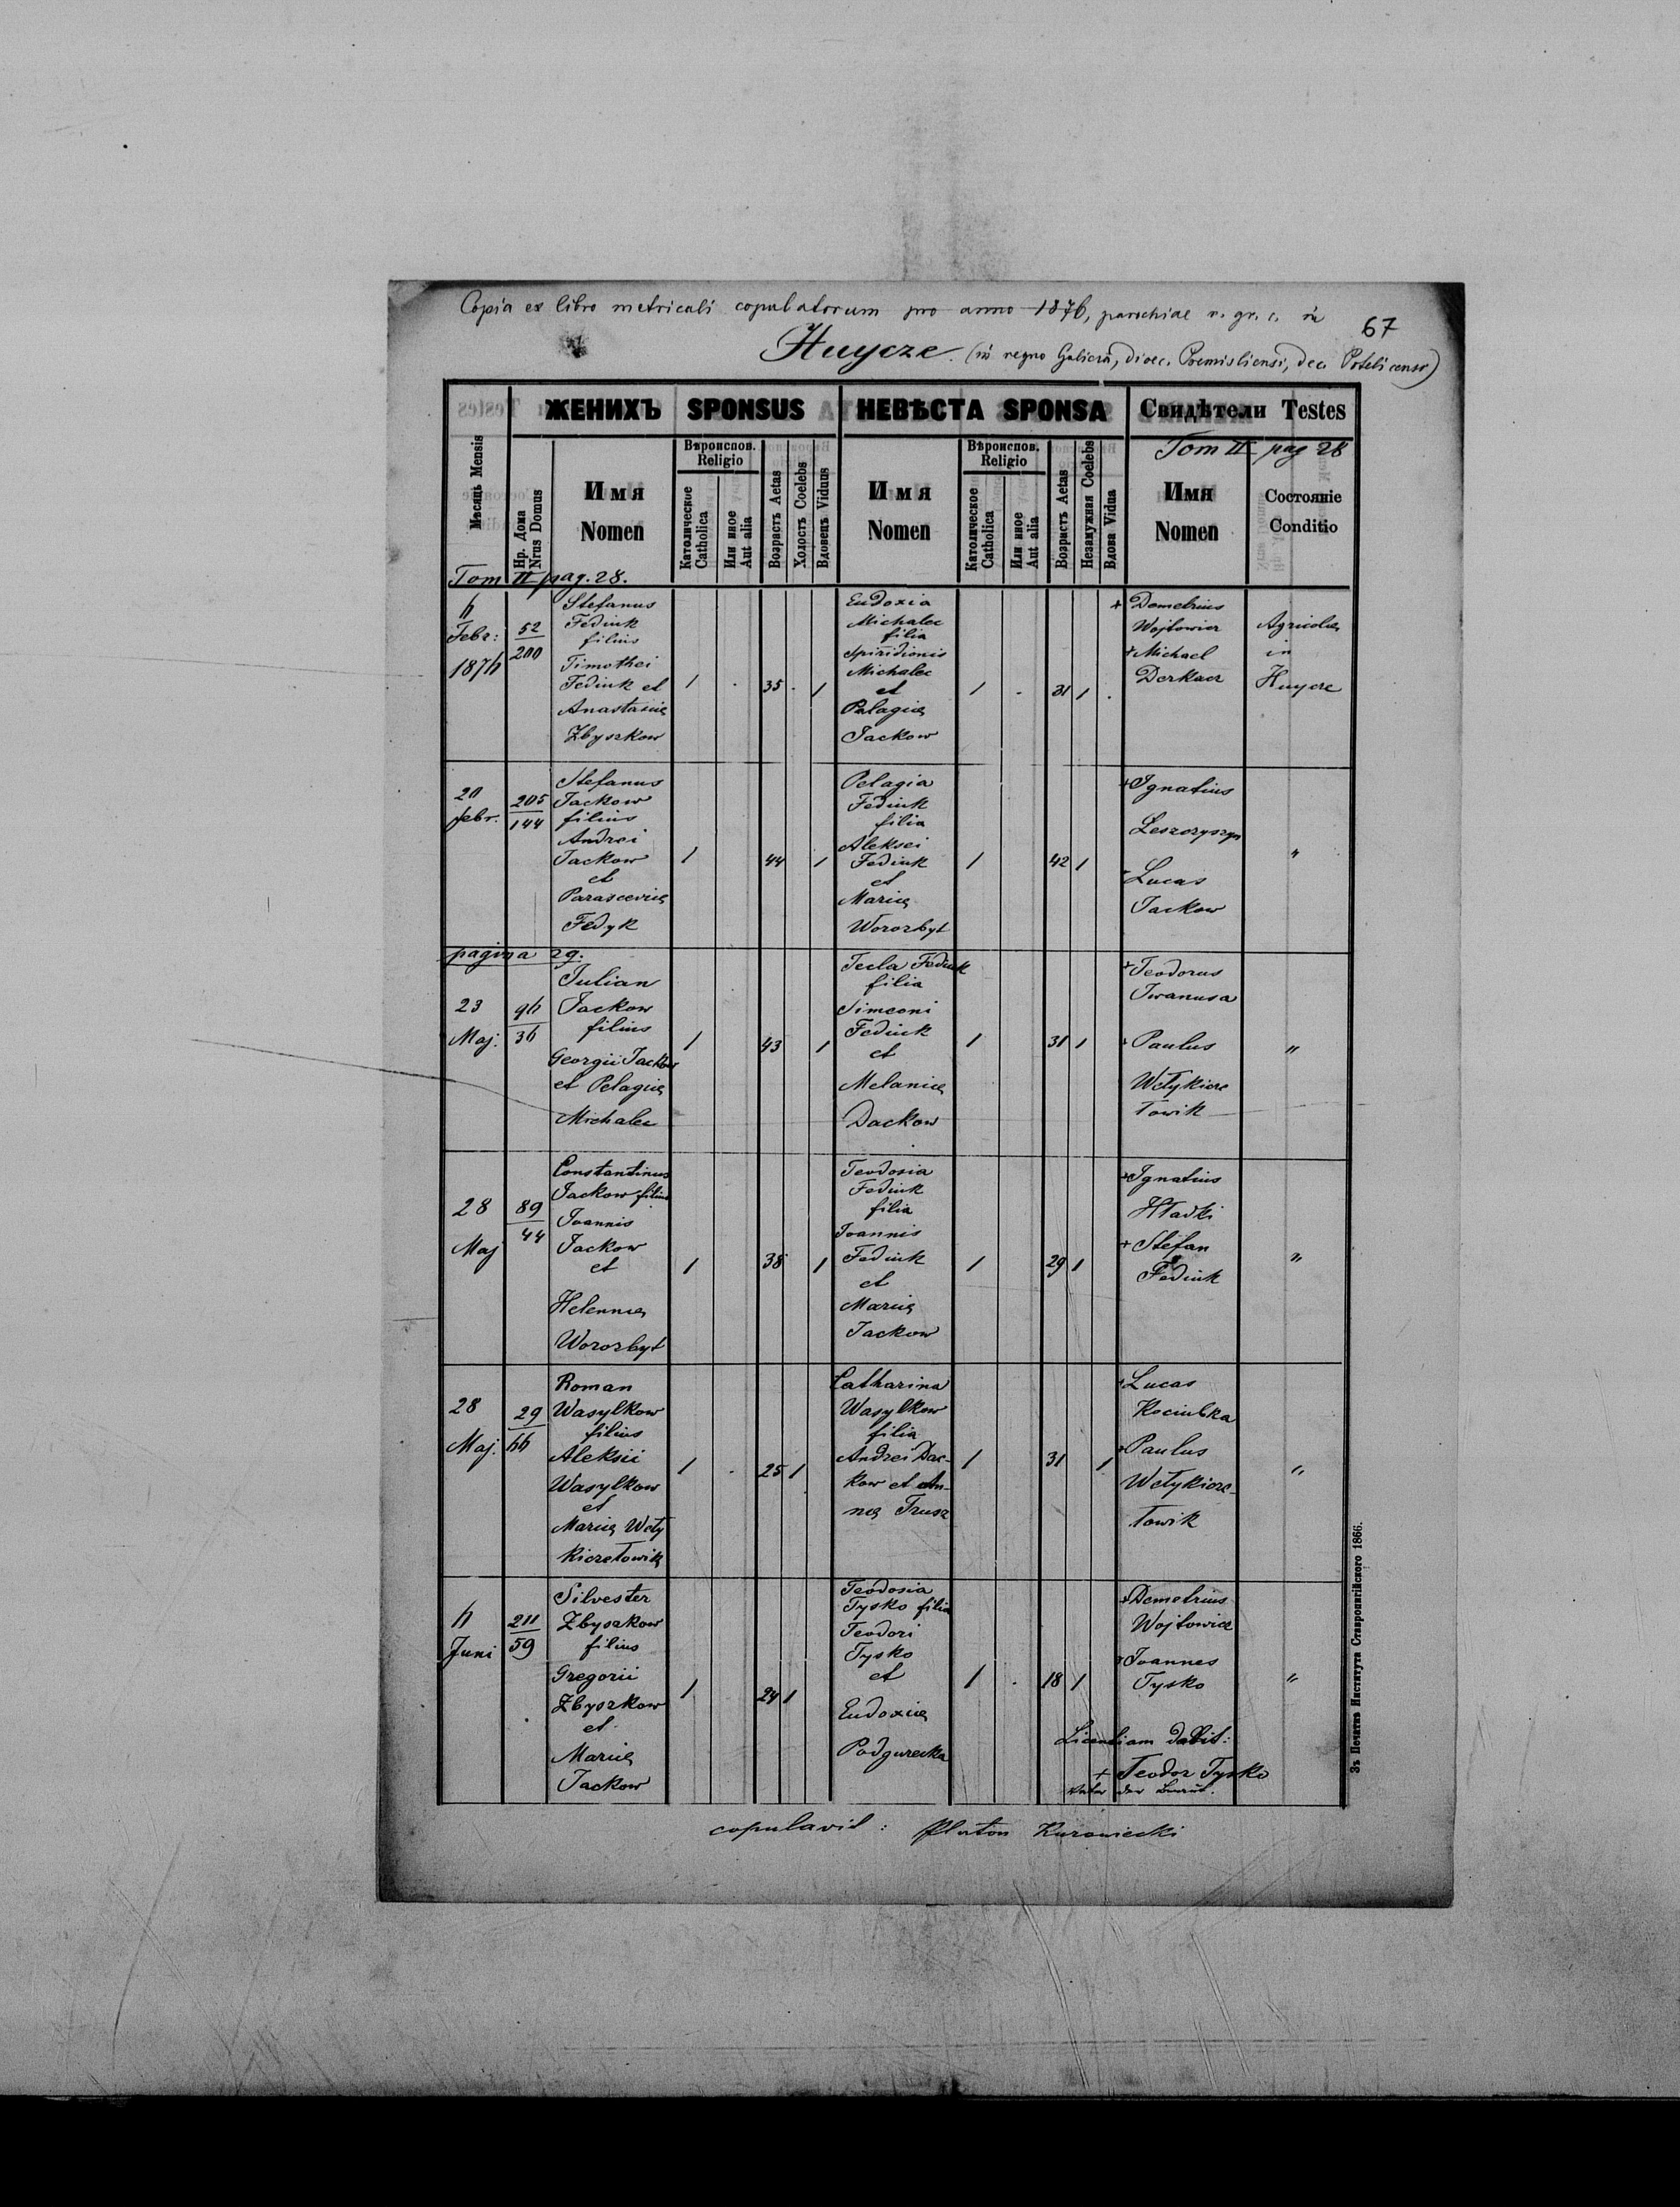 Copia ex libro metricali copulatorum pro anno 1876, parochiae r. gr. c. in
67
Huycze (in regno Galicia, dioec. Premisliensi, dec. Potelicensi)
ЖЕНИХЪ SPONSUS НЕВѢСТА SPONSA Свидѣтели Testes
Tom II pag 28
Мѣсяць Mensis
Нр. Дома Nrus Domus
Имя Nomen
Вѣроиспов. Religio
Католическое Catholica
Или иное Aut alia
Возрастъ Aetas
Холостъ Coelebs
Вдовецъ Viduus
Имя Nomen
Вѣроиспов. Religio
Католическое Catholica
Или иное Aut alia
Возрастъ Aetas
Незамужная Coelebs
Вдова Vidua
Имя Nomen
Состояніе Conditio
Tom II pag. 28.
6 Febr: 1876
52/200
Stefanus
Fediuk
filius
Timothei
Fediuk et
Anastasiae
Zbyszkow
1 . 35 . 1
Eudoxia
Michalec
filia
Spiridionis
Michalec
et
Pelagiae
Jackow
1 . 31 1 .
+ Demetrius
Wojtowicz
+ Michael
Derkacz
Agricolae
in
Huycze
20 febr.
205/144
Stefanus
Jackow
filius
Andrei
Jackow
et
Parasceviae
Fedyk
1 44 1
Pelagia
Fediuk
filia
Aleksei
Fediuk
et
Mariae
Worozbyt
1 42 1
+ Ignatius
Leszczyszyn
Lucas
Jackow
"
pagina 29.
23 Maj.
96/36
Julian
Jackow
filius
Georgii Jackow
et Pelagiae
Michalec
1 43 1
Tecla Fediuk
filia
Simeoni
Fediuk
et
Melaniae
Dackow
1 31 1
+ Teodorus
Iwanusa
+ Paulus
Wełykicze
łowik
"
28 Maj
89/44
Constantinus
Jackow filius
Joannis
Jackow
et
Helennae
Worozbyt
1 38 1
Teodosia
Fediuk
filia
Joannis
Fediuk
et
Mariae
Jackow
1 29 1
+ Ignatius
Hładki
+ Stefan
Fediuk
"
28 Maj.
29/66
Roman
Wasylkow
filius
Aleksii
Wasylkow
et
Mariae Wełykiczełowik
1 . 25 1
Catharina
Wasylkow
filia
Andrei Dac-
kow et An-
nae Trusz
1 31 1
+ Lucas
Kociubka
+ Paulus
Wełykicze-
łowik
"
6 Juni
211/59
Silvester
Zbyszkow
filius
Gregorii
Zbyszkow
et
Mariae
Jackow
1 24 1
Teodosia
Tysko filia
Teodori
Tysko
et
Eudoxiae
Podgurecka
1 . 18 1
+ Demetrius
Wojtowicz
+ Joannes
Tysko
"
Licentiam dabit:
+ Teodor Tysko
Vater der Braut.
copulavit: Platon Kurowiecki
Зъ Печатнѣ Института Ставропигійского 1866.